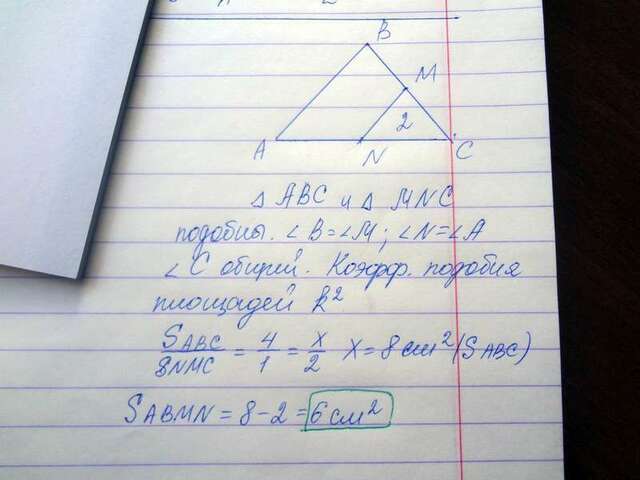 B
M
2
A
N
C
△ ABC и △ MNC
подобны. ∠B=∠M; ∠N=∠A
∠C общий. Коэфф. подобия
площадей k²
SABC/SNMC = 4/1 = x/2 X = 8 см² (SABC)
SABMN = 8 - 2 = 6 см²